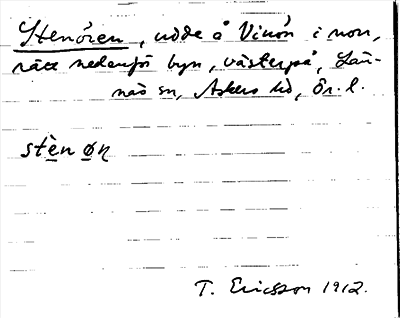 Stenören, udde å Vinön i norr,
rätt nedanför byn, västerpå, Län-
näs sn, Askers hd, Ör. l.
stèn øn
T. Ericsson 1912.